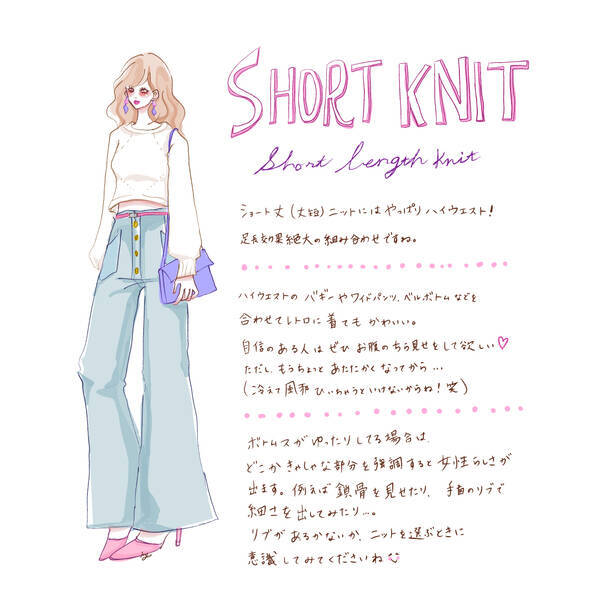 SHORT KNIT
Short length knit
ショート丈(丈短)ニットにはやっぱりハイウエスト!
足長効果絶大の組み合わせですね。
ハイウエストのバギーやワイドパンツ、ベルボトムなどを
合わせてレトロに着てもかわいい。
自信のある人はぜひお腹のちら見せをして欲しい♡
ただし、もうちょっとあたたかくなってから…
(冷えて風邪ひいちゃうといけないからね!笑)
ボトムスがゆったりしてる場合は、
どこかきゃしゃな部分を強調すると女性らしさが
出ます。例えば鎖骨を見せたり、手首のリブで
細さを出してみたり…。
リブがあるかないか、ニットを選ぶときに
意識してみてくださいね